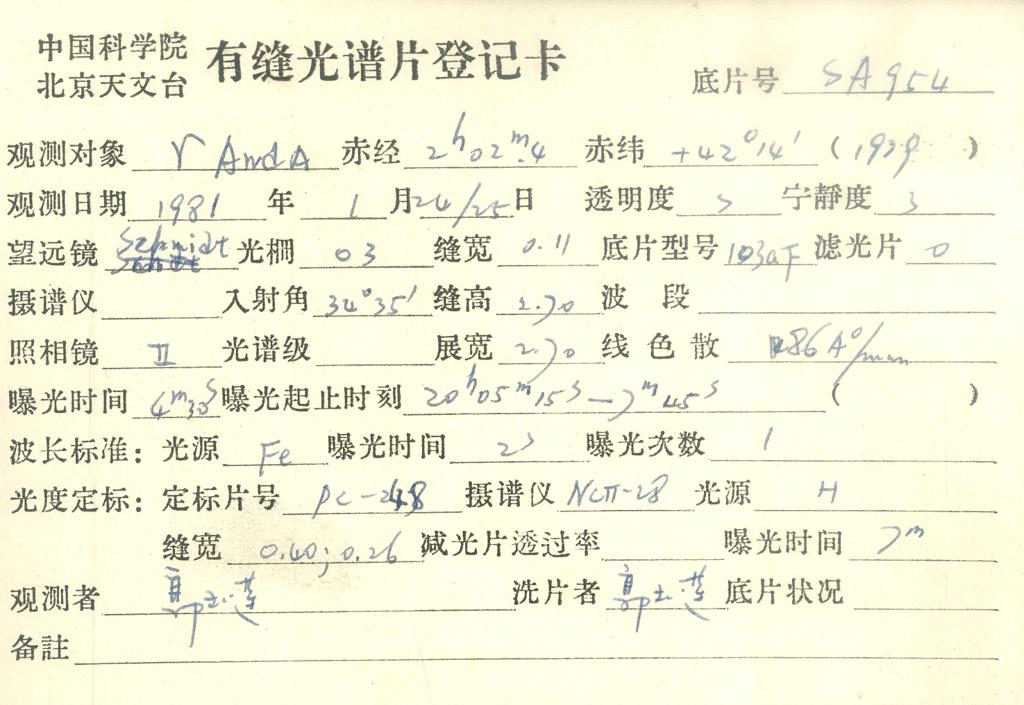 中国科学院
北京天文台
有缝光谱片登记卡
底片号 SA954
观测对象 γ AndA 赤经 2h02m.4 赤纬 +42°14′ (1929)
观测日期 1981 年 1 月 24/25 日 透明度 宁静度 3
望远镜 Schmidt 光栅 03 缝宽 0.11 底片型号 103aF 滤光片 0
摄谱仪 入射角 34°35′ 缝高 2.70 波段
照相镜 II 光谱级 展宽 2.70 线色散 86A°/mm
曝光时间 4m30s 曝光起止时刻 20h05m15s—7m45s ( )
波长标准: 光源 Fe 曝光时间 2s 曝光次数 1
光度定标: 定标片号 PC-248 摄谱仪 光源 H
缝宽 0.40; 0.26 减光片透过率 曝光时间 7m
观测者 郭玉莲 洗片者 郭玉莲 底片状况
备註